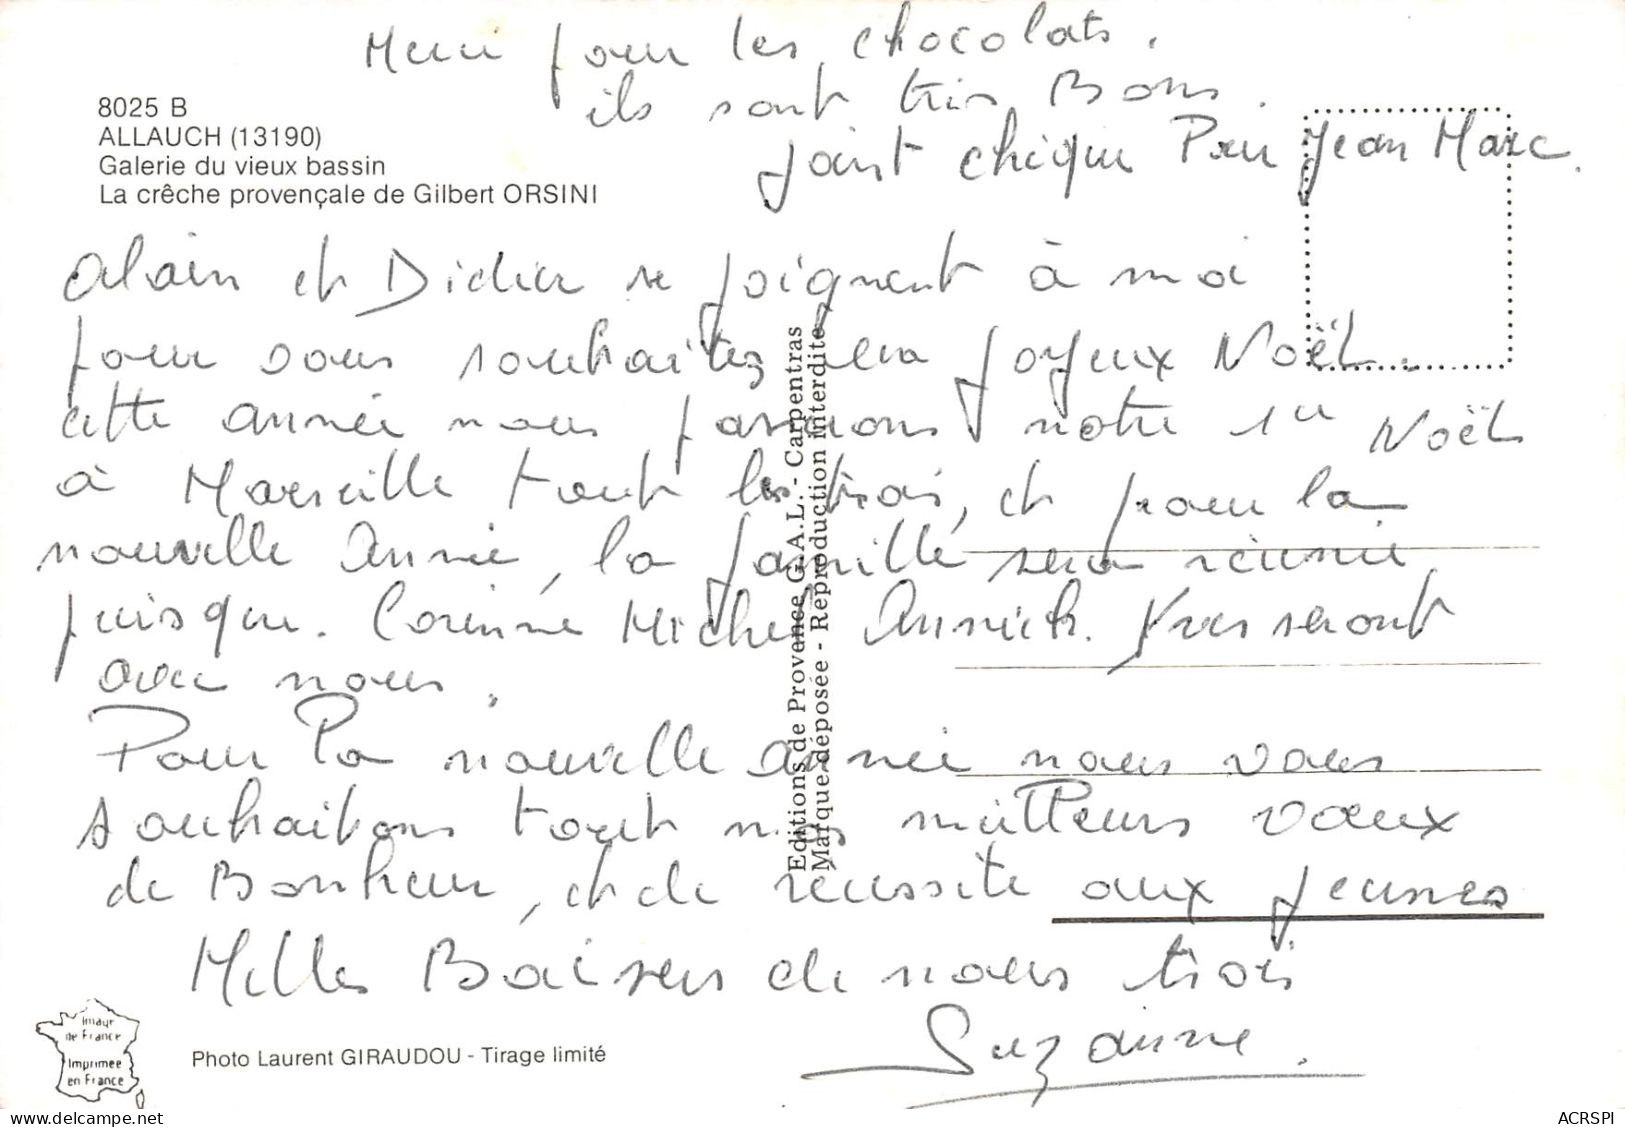 Merci pour les chocolats.
ils sont très Bons.
Joint chèque Pour Jean Marc.
8025 B
ALLAUCH (13190)
Galerie du vieux bassin
La crêche provençale de Gilbert ORSINI
Alain et Didier se joignent à moi
pour vous souhaitez un Joyeux Noël.
cette année nous passerons notre 1er Noël
à Marseille tout les trois, et pour la
nouvelle Année, la famille sera réunie
puisque. Corinne Michel Annick. Yves seront
avec nous.
Pour la nouvelle année nous vous
souhaitons tout nos meilleurs vœux
de Bonheur, et de réussite aux jeunes
Milles Baisers de nous trois
Suzanne.
Editions de Provence G.A.L. - Carpentras
Marque déposée - Reproduction interdite
Image
de France
Imprimée
en France
Photo Laurent GIRAUDOU - Tirage limité
delcampe.net
ACRSPI